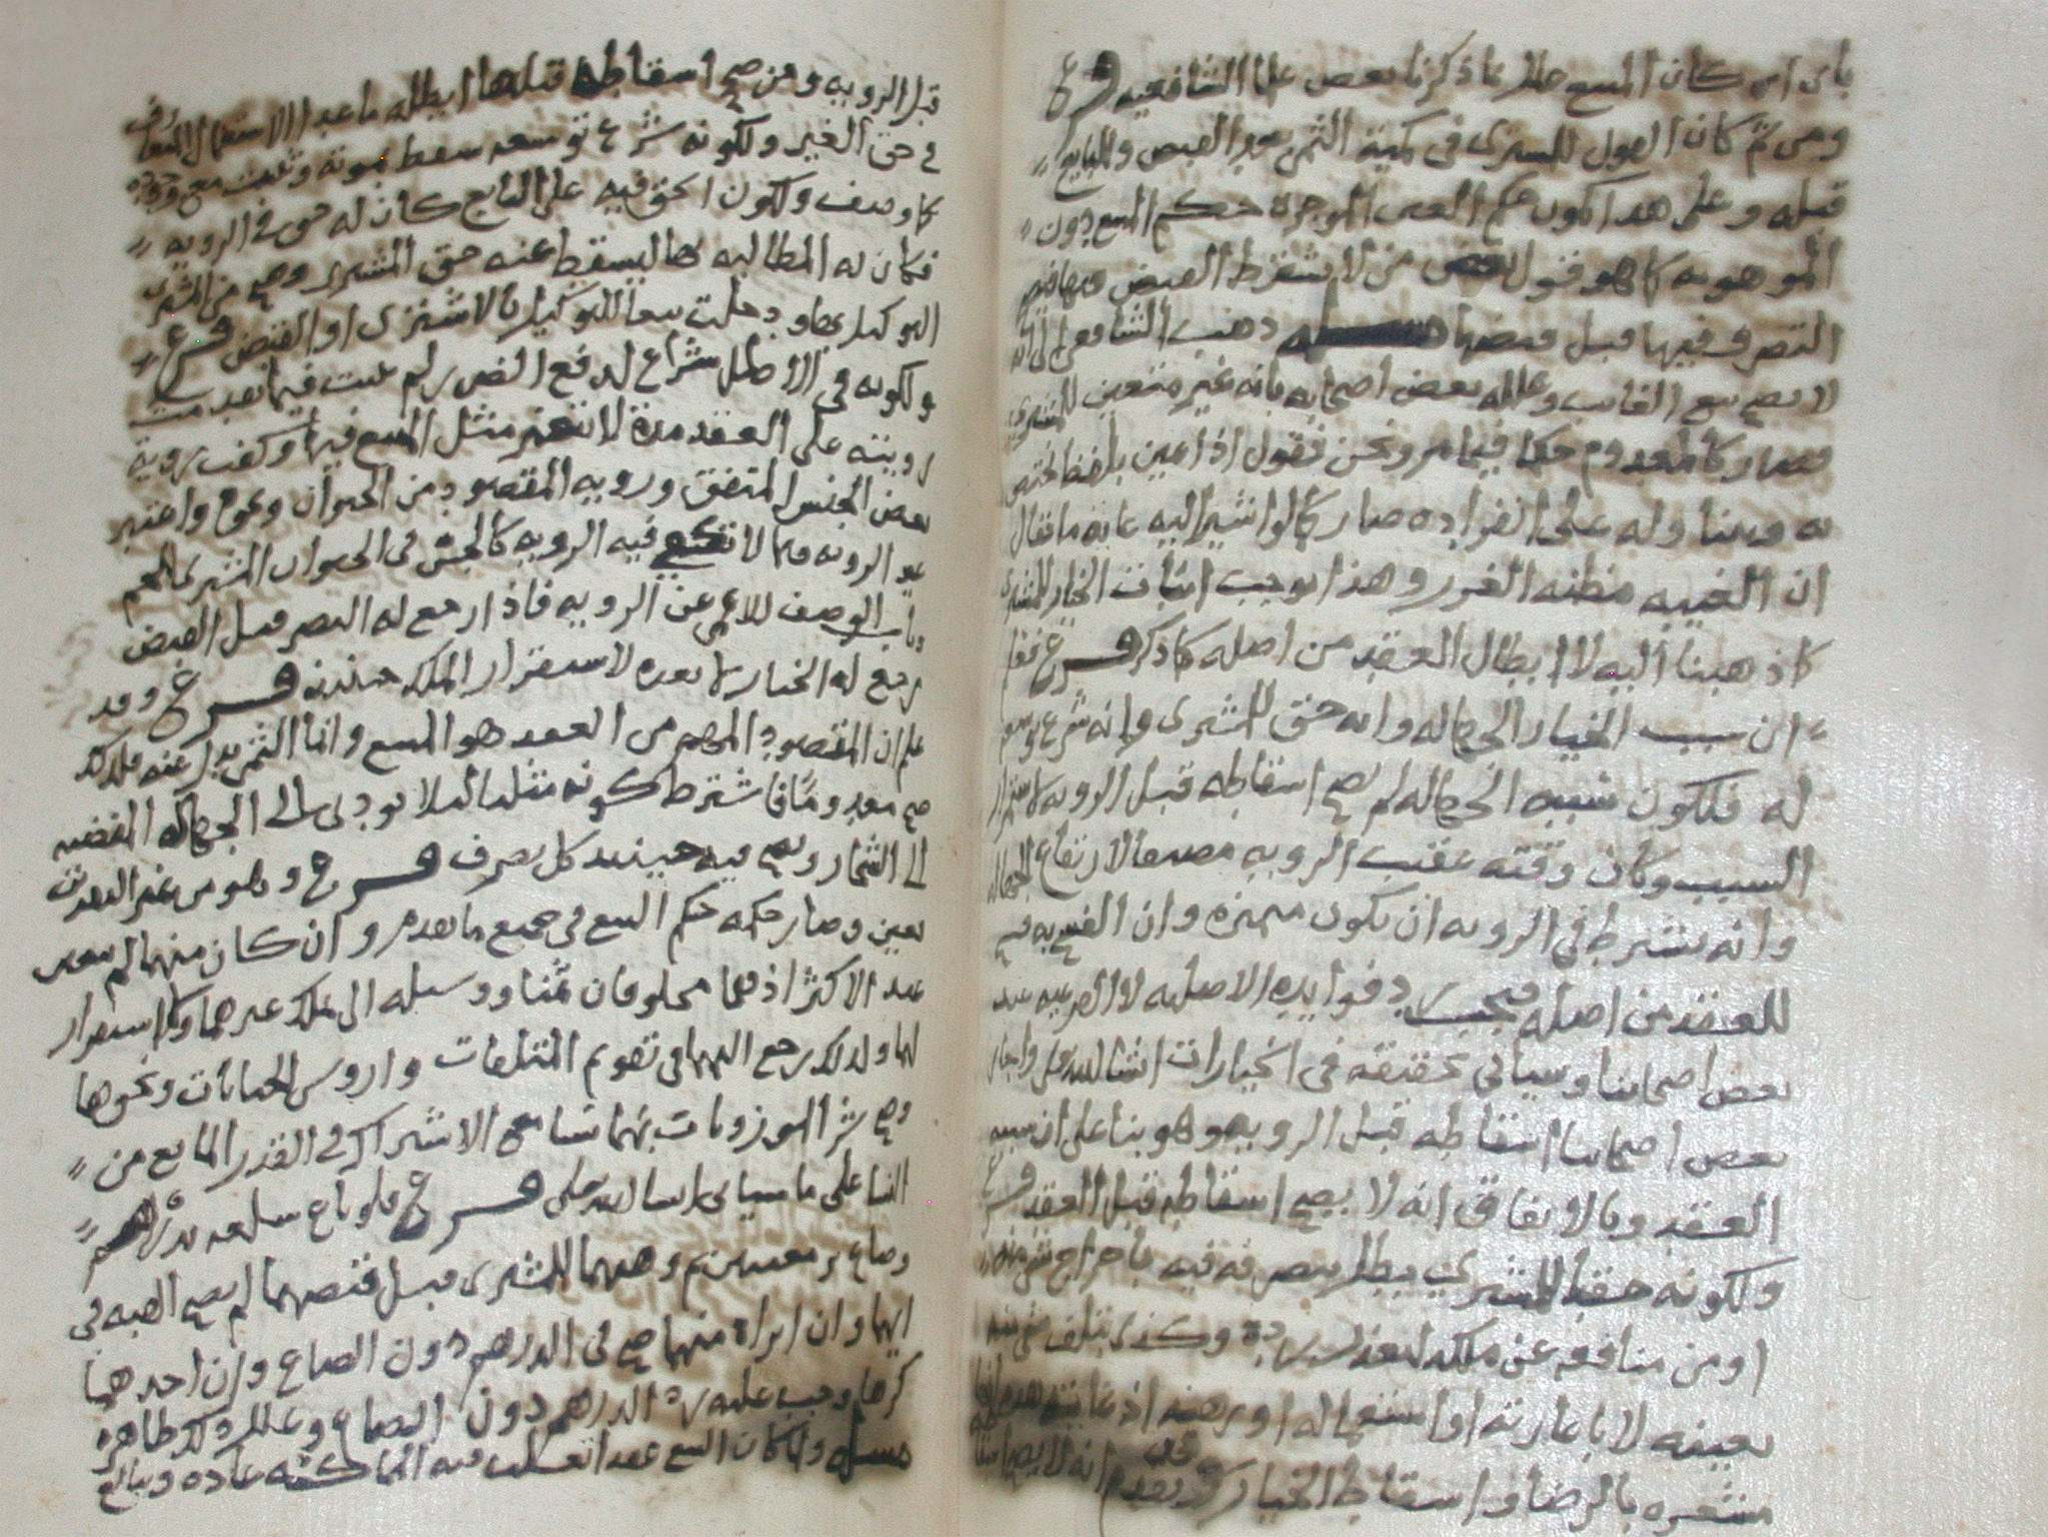 باى امر كان المبيع وعلل ما ذكرنا بعض علما الشافعيه فرع
ومن ثم كان القول للمشترى فى كمية الثمن بعد القبض وللبايع
قبله وعلى هذا يكون حكم العين الموجرة حكم المبيع دون
الموهوبه كما هو قول بعض من لا يشترط القبض فيها فيصح
التصرف فيها قبل قبضها مسئله ذهب الشافعى الى انه
لا يصح بيع الغايب وعلله بعض اصحابه بانه غير متعين للمشترى
فصار كالمعدوم حكما فيما مر ونحن نقول اذا عين بلفظ يختص
به ويتناوله على انفراده صار كما لو اشير اليه غايه ما يقال
ان الغيبه مظنه الغرر وهذا يوجب اثبات الخيار للمشترى
كما ذهبنا اليه لا ابطال العقد من اصله كما ذكر فرع
ان سبب الخيار الجهاله وانه حق للمشترى وانه شرع توسعه
له فلكون سببه الجهاله لم يصح اسقاطه قبل الرويه لاستمرار
السبب وكان وقته عقيب الرويه مضيقا لارتفاع الجهاله
وانه يشترط فى الرويه ان يكون مميزه وان الفسخ به فسخ
للعقد من اصله فيجب رد فوايده الاصليه لا الفرعيه عند
بعض اصحابنا وسياتى تحقيقه فى الخيارات انشا الله تعلى واجاز
بعض اصحابنا اسقاطه قبل الرويه وهو بنا على ان سببه
العقد وبالاتفاق انه لا يصح اسقاطه قبل العقد فرع
ولكونه حقا للمشترى يبطل بتصرفه فيه باخراج شى منه
او من منافعه عن ملكه لتعذر رده وكذى بتلف شى منه
بعينه لا باعارته او استعماله او رهنه اذ غايته هذه انها
مشعره بالرضا واسقاط الخيار وقد تقدم انه لا يصح اسقاطه
قبل الرويه ومن صحح اسقاطه قبلها ابطله ما عدا الاستعمال المتعارف
فى حق الغير ولكونه شرع توسعه سقط بموته وثبت مع وجوده
كما وصف ولكون الحق فيه على البايع كان له حق فى الرويه
فكان له المطالبه بها ليسقط عنه حق المشترى وصح من المشترى
التوكيل بها ودخلت تبعا للتوكيل بالاشترى او القبض فرع
ولكونه فى الاصل شراع لدفع الضرر لم يثبت فيما تقدمت
رويته على العقد مدة لا يتغير مثل المبيع فيها وكفت روية
بعض الجنس المتفق ورويه المقصود من الحيوان ونحوه واعتبر
غير الرويه فيما لا تكفى فيه الرويه كالجس فى الحيوان المشترى للحم
وناب الوصف للاعمى عن الرويه فاذا رجع له البصر قبل القبض
رجع له الخيار لا بعده لاستقرار الملك حينئذ فرع وقد
علم ان المقصود المهم من العقد هو المبيع وانما الثمن بدل عنه فلذلك
صح معدوما فاشترط كونه مثليا ليلا يودى الى الجهاله المفضيه
الى الشجار ويصح فيه حينئذ كل تصرف فرع وهو من غير النقدين
يتعين وصار حكمه حكم المبيع فى جميع ما تقدم وان كان منهما لم يتعين
عند الاكثر اذ هما مخلوقان ثمنا ووسيله الى تملك غيرهما ولا استقرار
لهما ولذلك رجع اليهما فى تقويم المتلفات واروش الجنايات ونحوها
وصح شرا الموزونات بهما نسا مع الاشتراك فى القدر المانع من
النسا على ما سياتى انشا الله تعلى فرع فلو باع سلعه بدراهم
وصاع بر معينين ثم وهبهما للمشترى قبل قبضهما لم يصح الهبه فى
ايهما وان ابراه منهما صح فى الدراهم دون الصاع وان احدهما
كرها وجب عليه رد الدراهم دون الصاع وعلل ذلك ظاهره
مسئله ولما كان البيع عقدا تطلب فيه المماكسه عاده ويبالغ